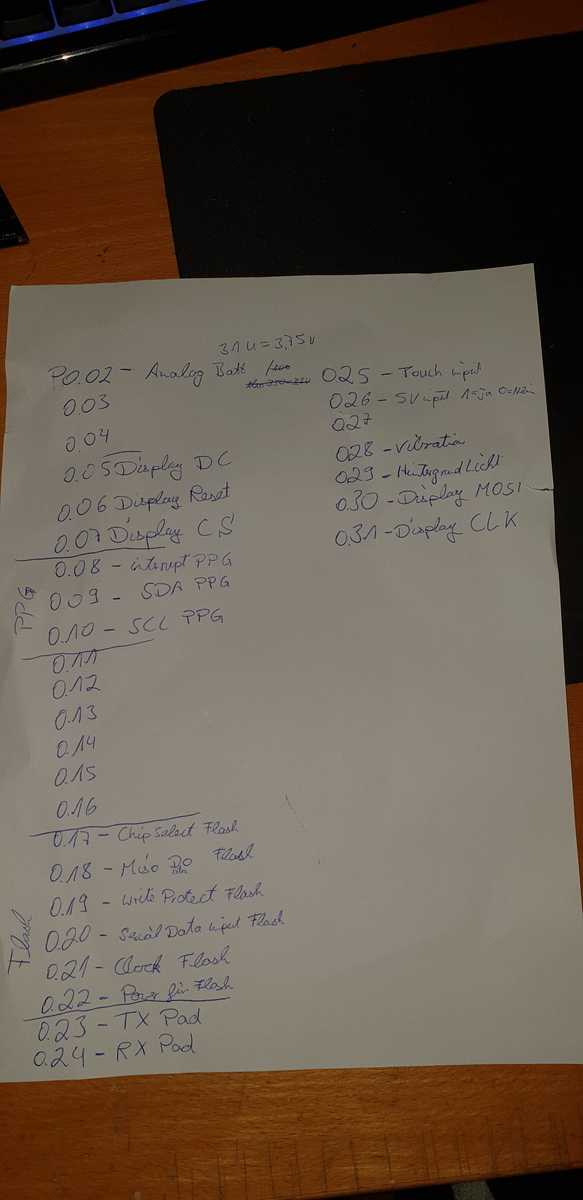 31U = 3,75V
P0.02 - Analog Batt /100
0.03
0.04
0.05 Display DC
0.06 Display Reset
0.07 Display CS
PPG
0.08 - interrupt PPG
0.09 - SDA PPG
0.10 - SCL PPG
0.11
0.12
0.13
0.14
0.15
0.16
Flash
0.17 - Chip Select Flash
0.18 - Miso Do Flash
0.19 - Write Protect Flash
0.20 - Serial Data input Flash
0.21 - Clock Flash
0.22 - Power für Flash
0.23 - TX Pad
0.24 - RX Pad
025 - Touch input
026 - 5V input 1=Ja 0=Nein
027
028 - Vibration
029 - Hintergrund Licht
0.30 - Display MOSI
0.31 - Display CLK